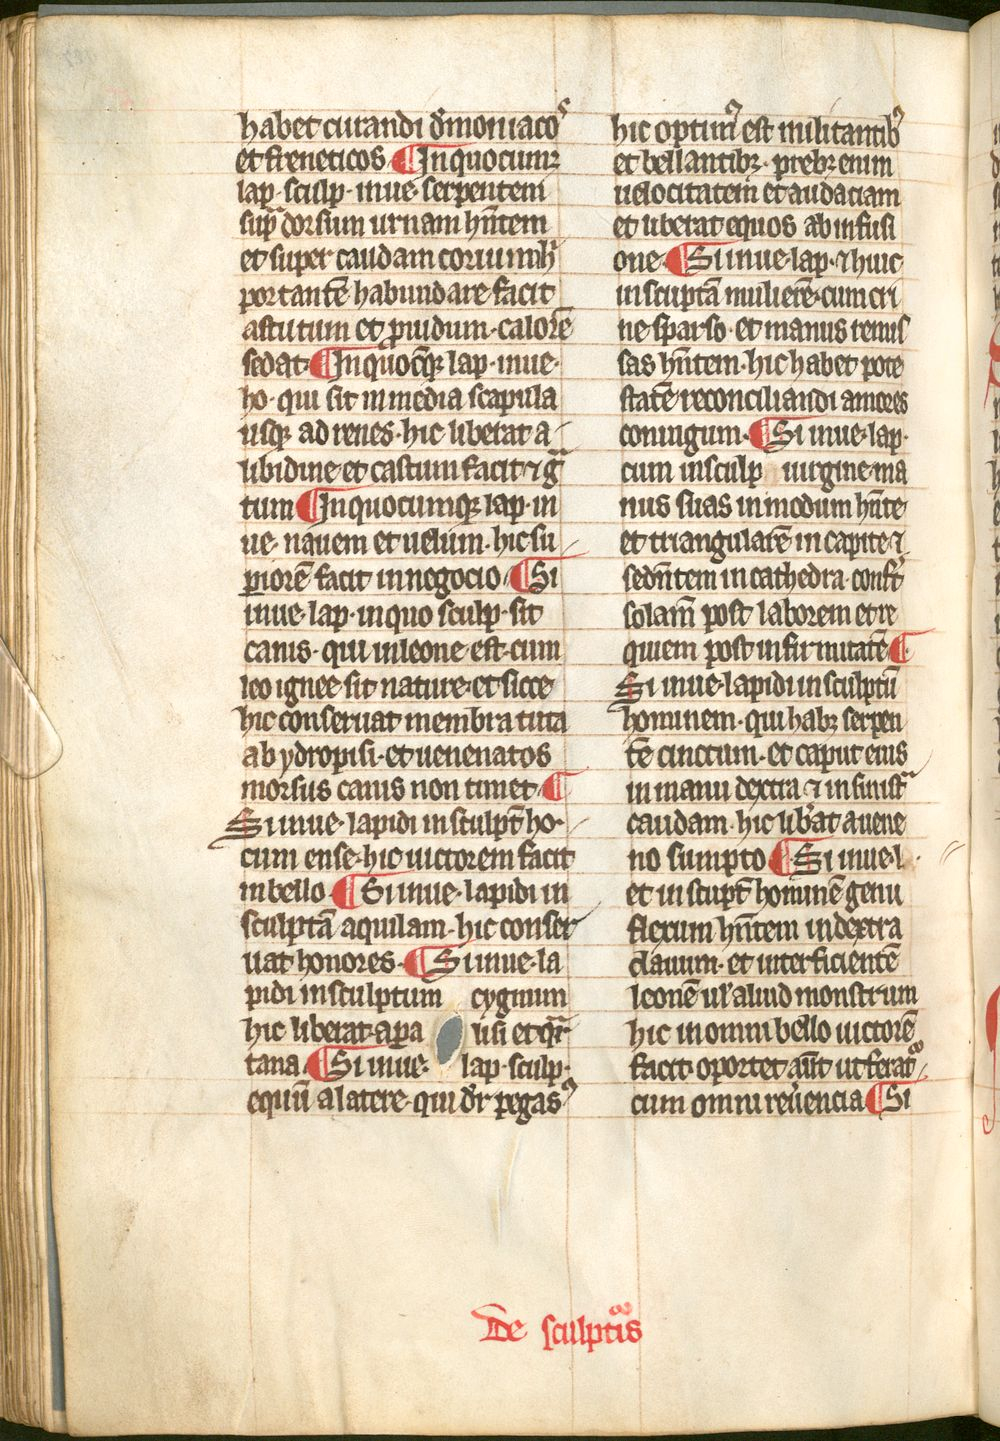 habet curandi dẽmoniacoˢ
et freneticos ¶ In quocumqꝫ
lap· sculp· inue· serpentem
sup̃ dorsum urnam hñtem
et super caudam coruum
portantẽ habundare facit
astutum et ꝓuidum· calorẽ
sedat· ¶ In quocũqꝫ lap· inue·
ho· qui sit in media scapula
usqꝫ ad renes· hic liberat a
libidine et castum facit ⁊ gͣ
tum ¶ In quocumqꝫ lap· in
ue· nauem et uelum· hic su
ꝑiorẽ facit in negocio ¶ Si
inue· lap· in quo sculp· sit
canis· qui in leone est· cum
leo ignee sit nature· et sicce
hic conseruat membra tuta
ab ydropisi· et uenenatos
morsus canis non timet· ¶
Si inue· lapidi insculpt̃ ho·
cum ense· hic uictorem facit
in bello· ¶ Si inue· lapidi in
sculptã aquilam· hic conser
uat honores· ¶ Si inue· la
pidi insculptum cygnum
hic liberat a ꝑa lisi et qͣr
tana ¶ Si inue· lap· sculp·
equũ alatere· qui dr̃ pegasꝰ
hic optimꝰ est militantibꝰ
et bellantibꝫ· prebꝫ enim
uelocitatem et audatiam
et liberat equos ab infusi
one· ¶ Si inue· lap· ⁊ huic
insculptã mulierẽ· cum cri
ne sparso· et manus remis
sas hñtem· hic habet pote
statẽ reconciliandi amores
coniugum· ¶ Si inue· lap·
cum insculp uirgine· ma
nus suas in modum hñte
et triangularẽ in capite ⁊
sedñtem in cathedra·
solam̃ post laborem et re
quiem post infirmitatẽ ¶
Si inue· lapidi insculptũ
hominem· qui habꝫ serpen
tẽ cinctum· et caput eius
in manu dextra ⁊ in sinistͣ
caudam· hic lib̾at a uene
no sumpto ¶ Si inue· l·
et insculpt̃ hominẽ genu
flexum hñtem in dextra
clauum· et interficientẽ
leonẽ ul̾ aliud monstrum
hic in omni bello uictorẽ
facit· oportet aũt ut feratͬ
cum omni reu̾encia ¶ Si
De sculptͣis